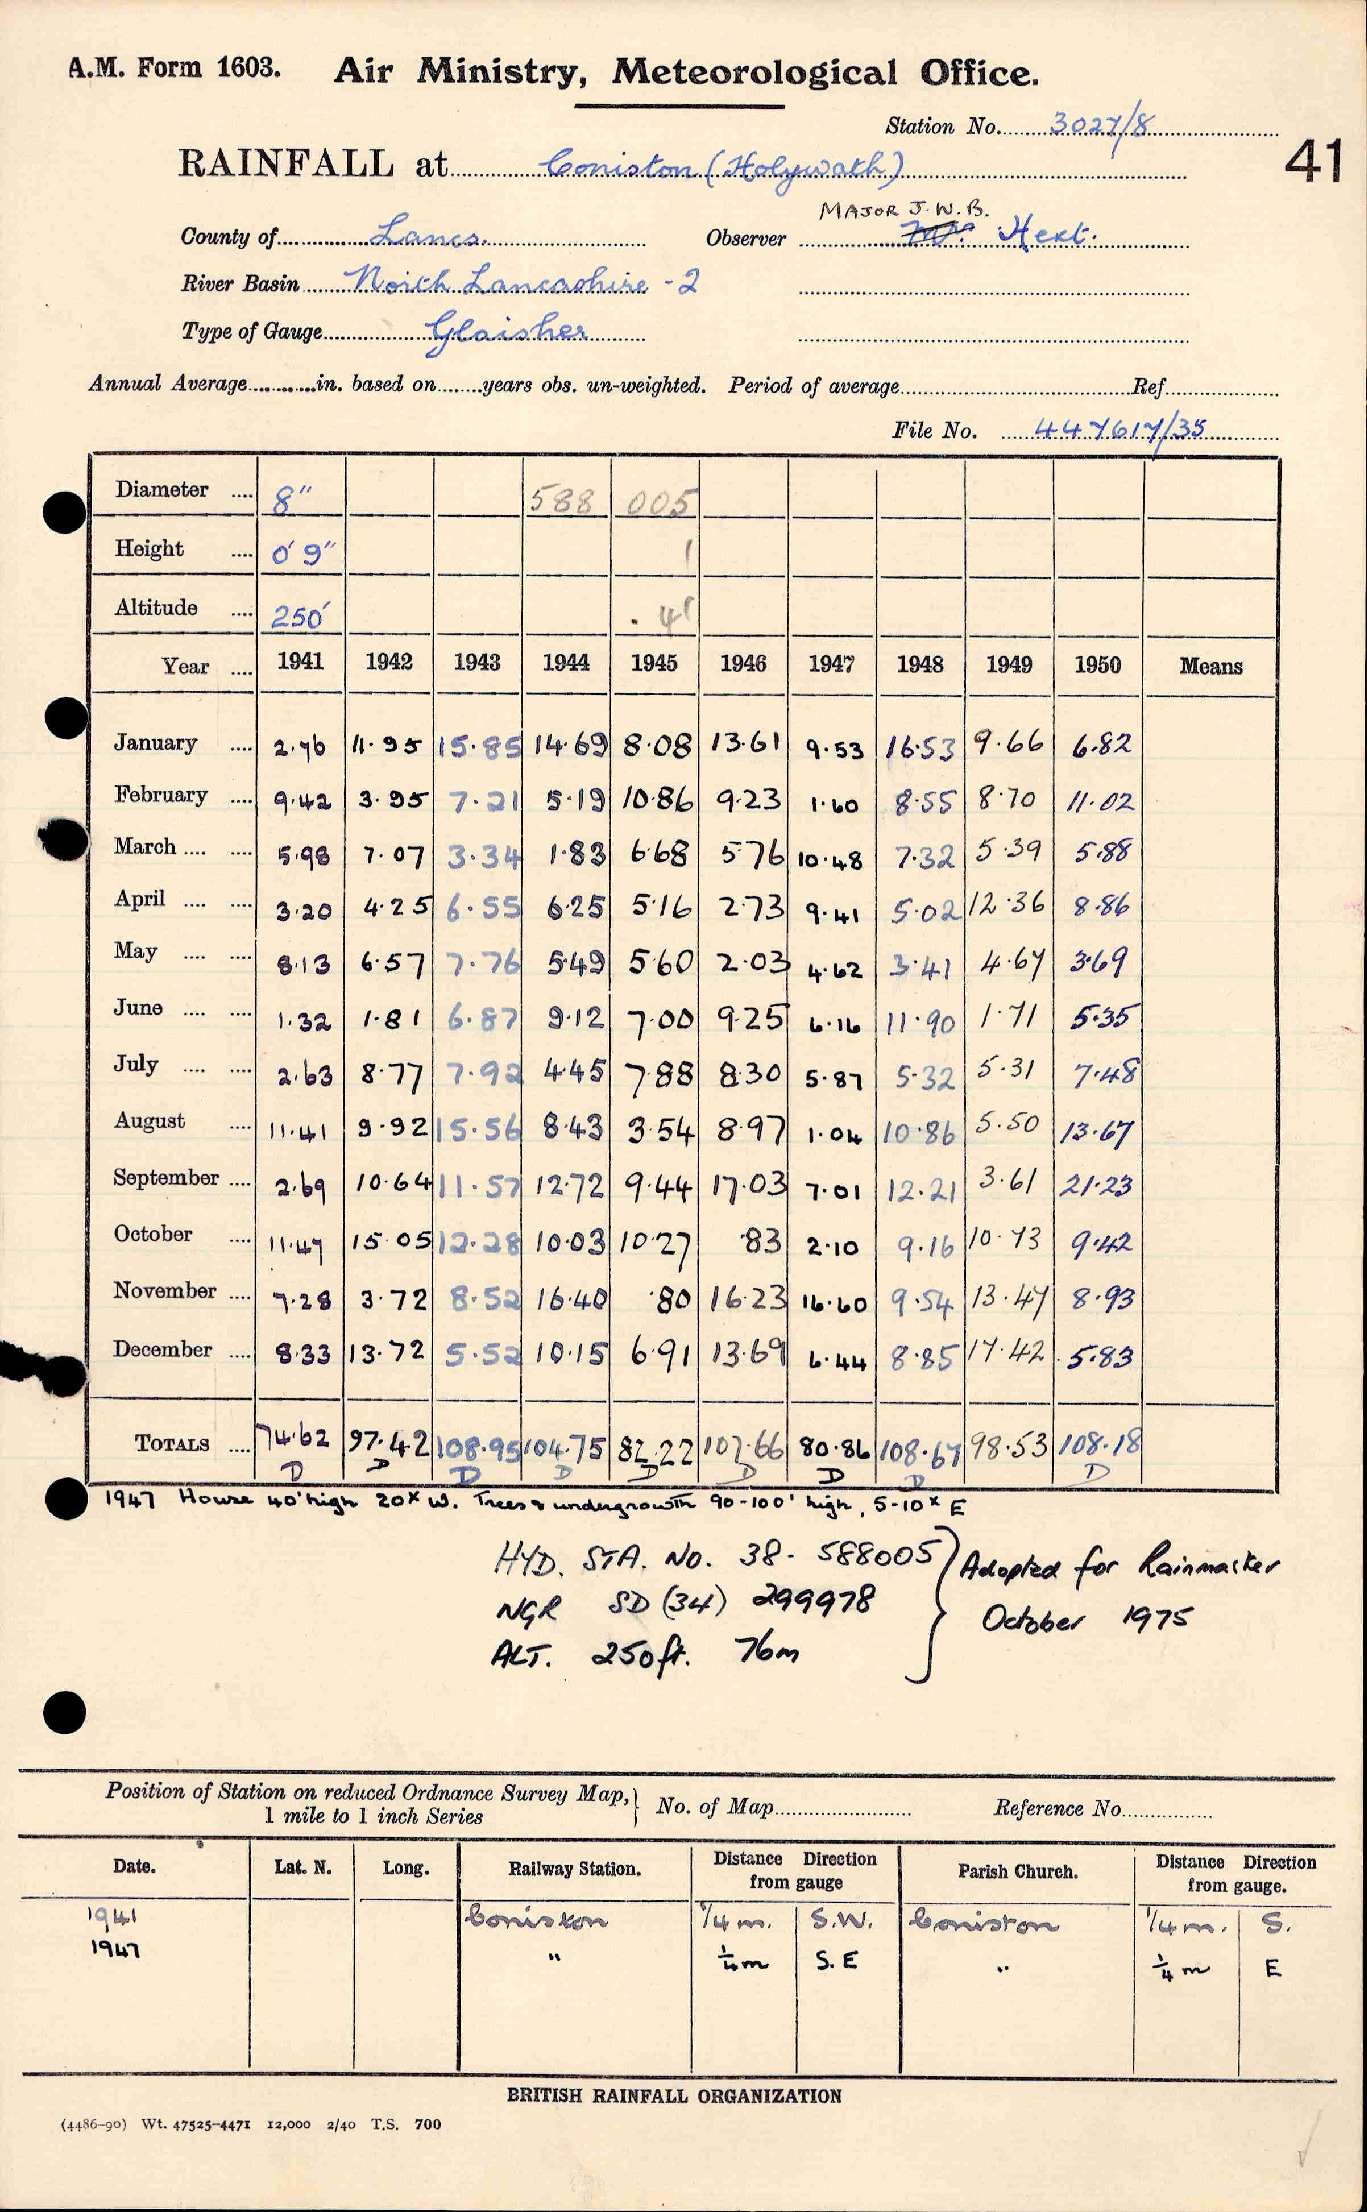 A.M. Form 1603. Air Ministry, Meteorological Office.
Station No. 3027/8
41
RAINFALL at Coniston (Holywath)
MAJOR J.W.B.
County of Lancs. Observer Mr. Hext.
River Basin North Lancashire - 2
Type of Gauge Glaisher
Annual Average in. based on years obs. un-weighted. Period of average Ref.
File No. 447617/35
Diameter 8" 588 005
Height 0' 9" 1
Altitude 250' . 41
Year 1941 1942 1943 1944 1945 1946 1947 1948 1949 1950 Means
January 2.76 11.95 15.85 14.69 8.08 13.61 9.53 16.53 9.66 6.82
February 9.42 3.95 7.21 5.19 10.86 9.23 1.60 8.55 8.70 11.02
March 5.98 7.07 3.34 1.83 6.68 5.76 10.48 7.32 5.39 5.88
April 3.20 4.25 6.55 6.25 5.16 2.73 9.41 5.02 12.36 8.86
May 8.13 6.57 7.76 5.49 5.60 2.03 4.62 3.41 4.67 3.69
June 1.32 1.81 6.87 9.12 7.00 9.25 6.16 11.90 1.71 5.35
July 2.63 8.77 7.92 4.45 7.88 8.30 5.87 5.32 5.31 7.48
August 11.41 9.92 15.56 8.43 3.54 8.97 1.04 10.86 5.50 13.67
September 2.69 10.64 11.57 12.72 9.44 17.03 7.01 12.21 3.61 21.23
October 11.47 15.05 12.28 10.03 10.27 .83 2.10 9.16 10.73 9.42
November 7.28 3.72 8.52 16.40 .80 16.23 16.60 9.54 13.47 8.93
December 8.33 13.72 5.52 10.15 6.91 13.69 6.44 8.85 17.42 5.83
TOTALS 74.62 97.42 108.95 104.75 82.22 107.66 80.86 108.67 98.53 108.18
D D D D D D D D D
1947 House 40' high 20x W. Trees & undergrowth 90-100' high, 5-10x E
HYD. STA. No. 38- 588005 } Adopted for Rainmaster
NGR SD (34) 299978 October 1975
ALT. 250ft. 76m
Position of Station on reduced Ordnance Survey Map, } No. of Map Reference No.
1 mile to 1 inch Series
Date. Lat. N. Long. Railway Station. Distance Direction from gauge Parish Church. Distance Direction from gauge.
1941 Coniston 1/4 m. S.W. Coniston 1/4 m. S.
1947 " 1/4 m S.E " 1/4 m E
BRITISH RAINFALL ORGANIZATION
(4486-90) Wt. 47525-4471 12,000 2/40 T.S. 700